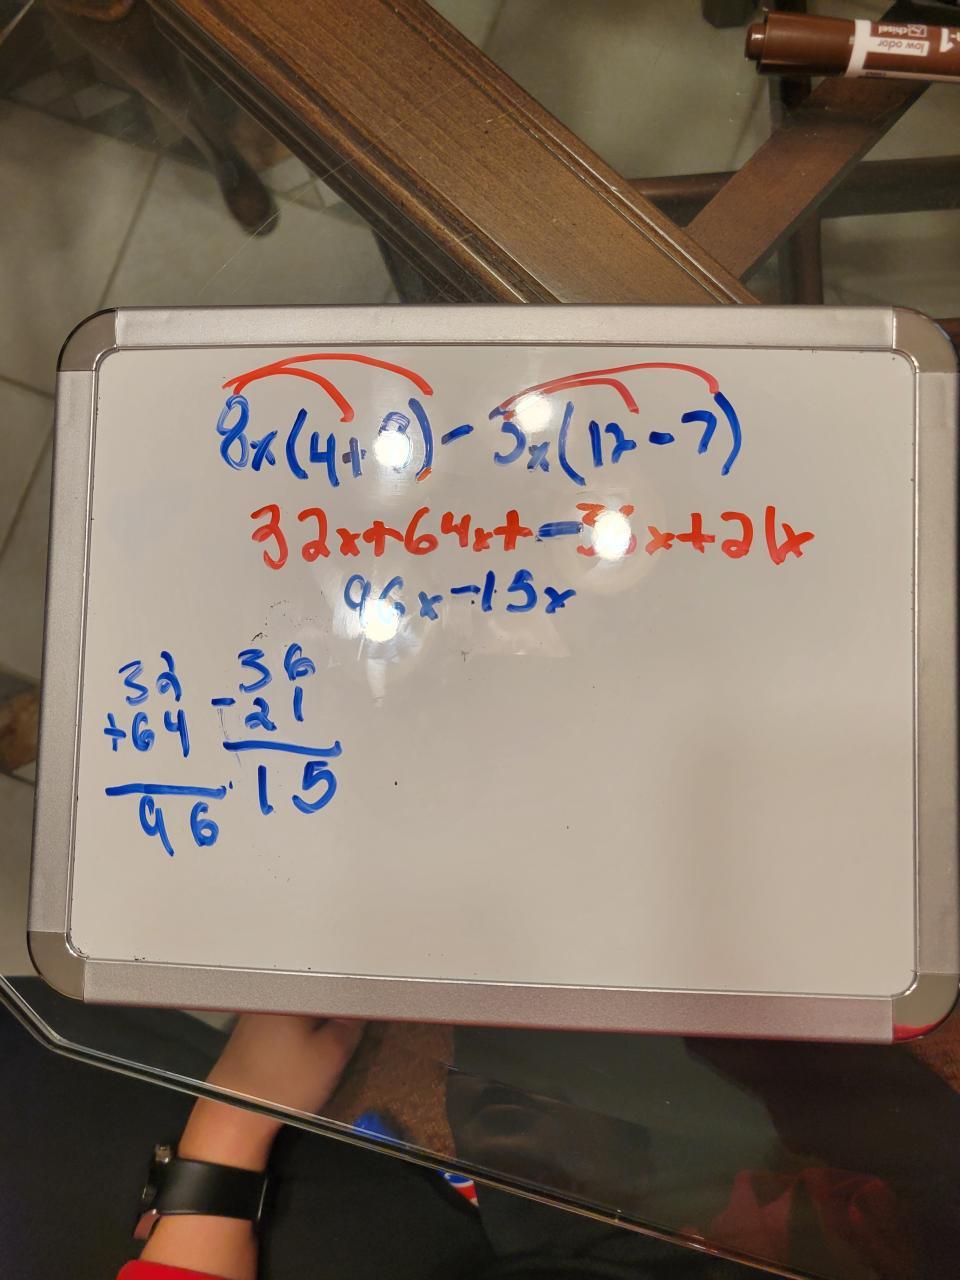 low odor
chisel
8x(4+8)-3x(12-7)
32x+64x+-36x+21x
96x-15x
32
+64
96
36
-21
15